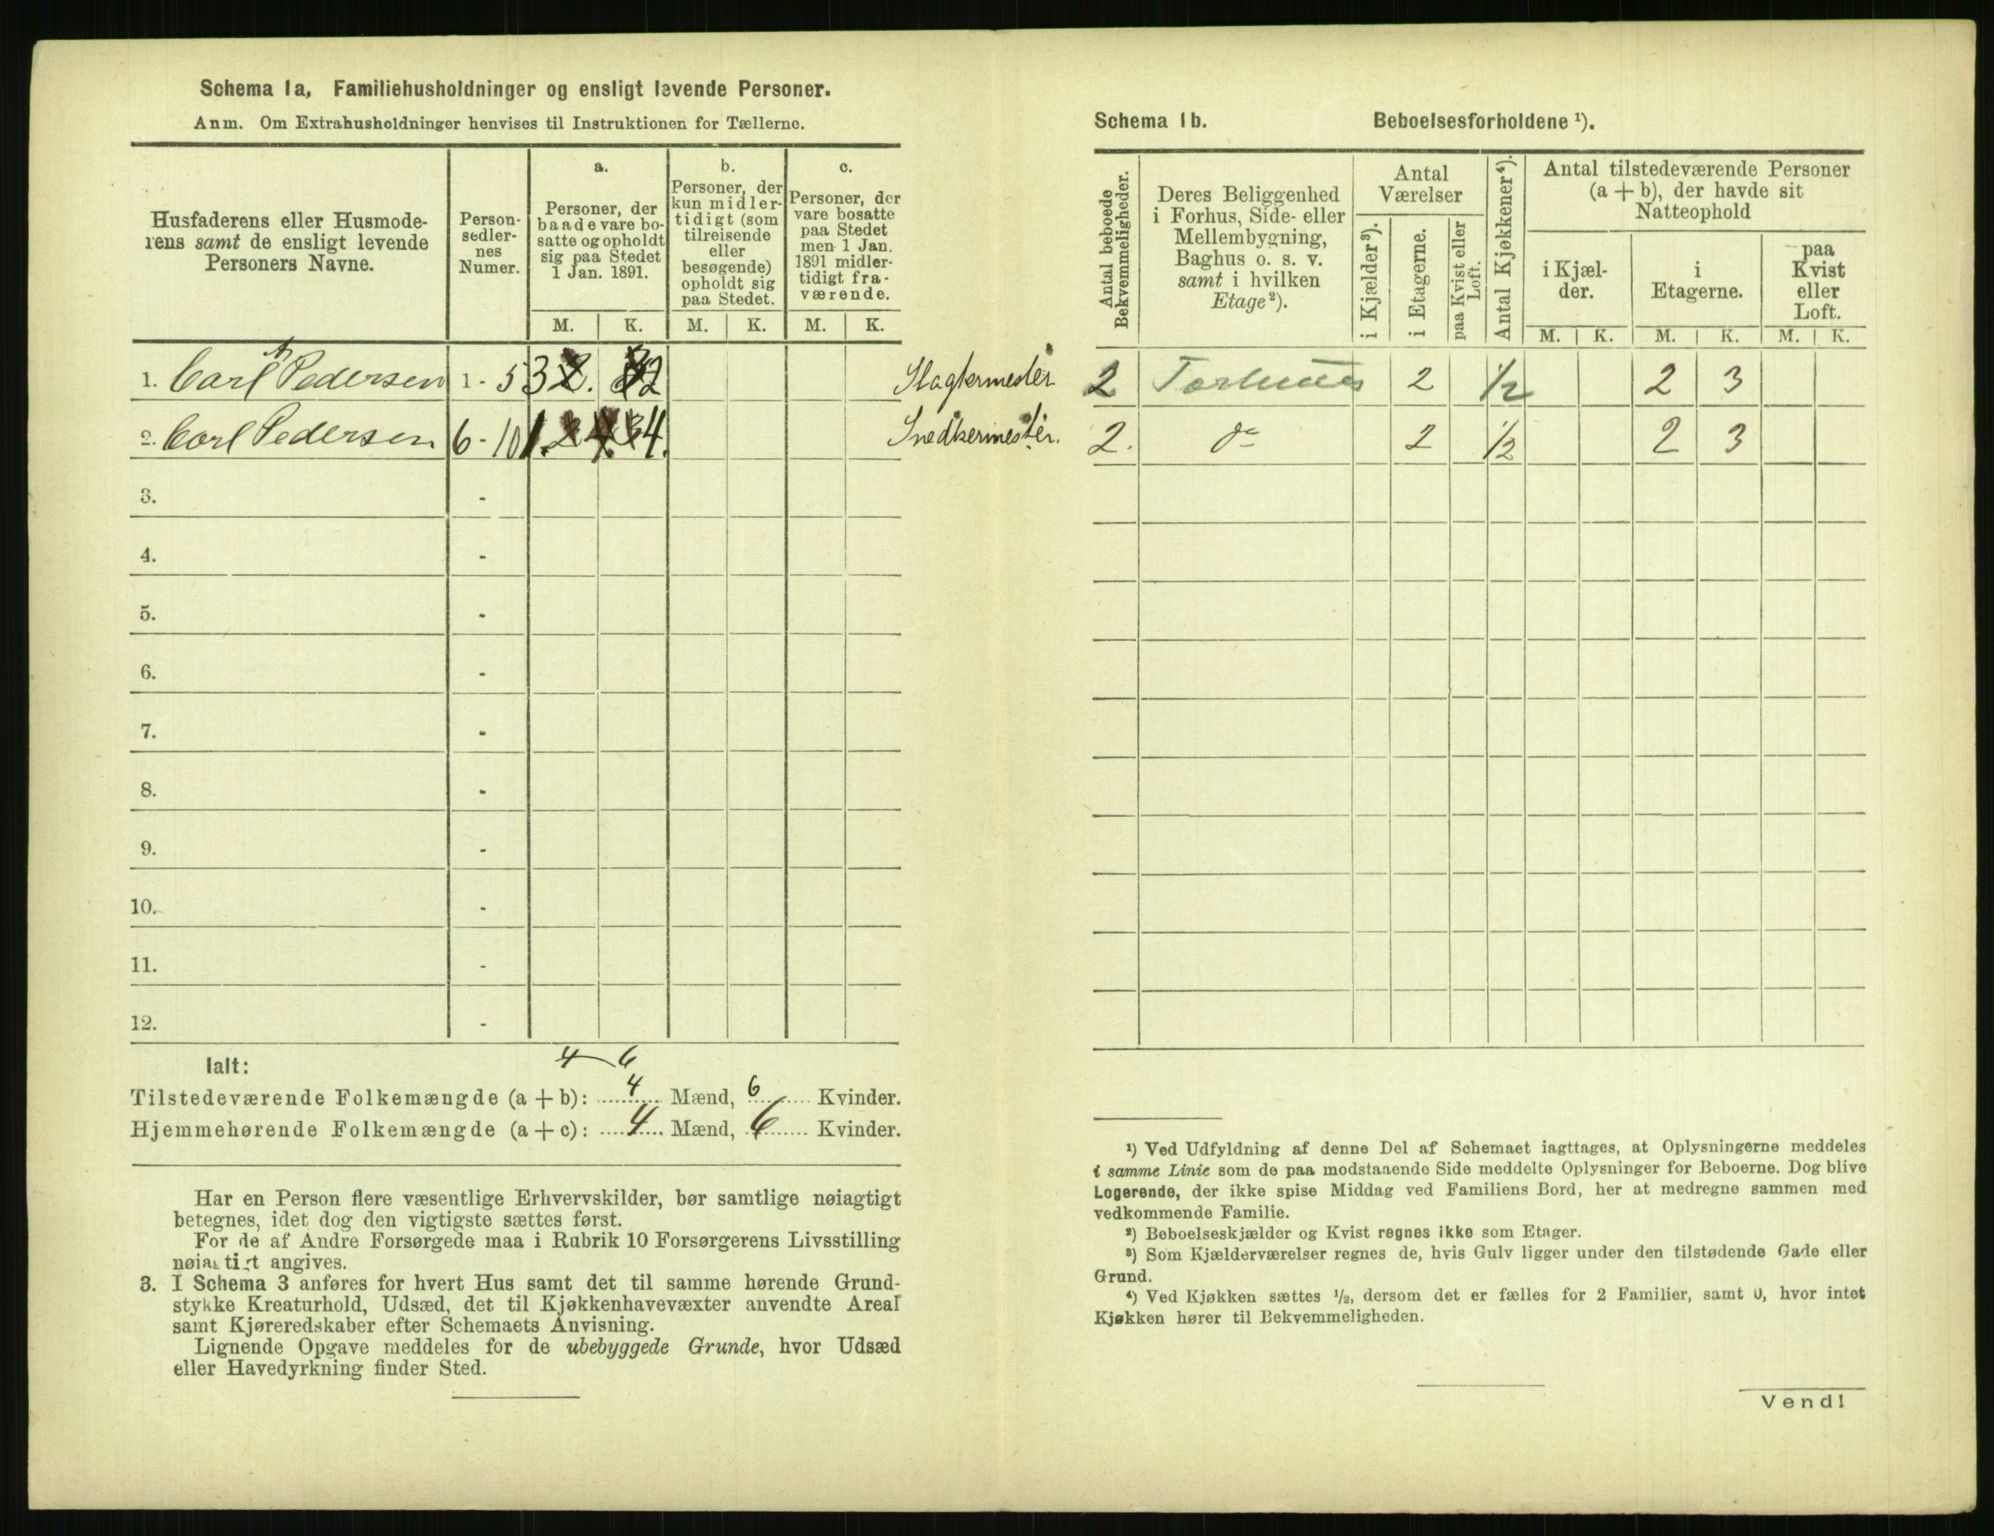 Schema 1a. Familiehusholdninger og ensligt levende Personer.
Anm. Om Extrahusholdninger henvises til Instruktionen for Tællerne.
Husfaderens eller Husmode-
rens samt de ensligt levende
Personers Navne.
Person-
sedler-
nes
Numer.
a.
Personer, der
baade vare bo-
satte og opholdt
sig paa Stedet
1 Jan. 1891.
M. K.
b.
Personer, der
kun midler-
tidigt (som
tilreisende
eller
besøgende)
opholdt sig
paa Stedet.
M. K.
c.
Personer, der
vare bosatte
paa Stedet
men 1 Jan.
1891 midler-
tidigt fra-
værende.
M. K.
1. Carl Pedersen 1 - 5 3 2 Slagtermester
2. Carl Pedersen 6 - 10 1. 4. Snedkermester.
3. -
4. -
5. -
6. -
7. -
8. -
9. -
10. -
11. -
12. -
Ialt: 4 6
Tilstedeværende Folkemængde (a + b): 4 Mænd, 6 Kvinder.
Hjemmehørende Folkemængde (a + c): 4 Mænd, 6 Kvinder.
Har en Person flere væsentlige Erhvervskilder, bør samtlige nøiagtigt
betegnes, idet dog den vigtigste sættes først.
For de af Andre Forsørgede maa i Rubrik 10 Forsørgerens Livsstilling
nøiagtigt angives.
3. I Schema 3 anføres for hvert Hus samt det til samme hørende Grund-
stykke Kreaturhold, Udsæd, det til Kjøkkenhavevæxter anvendte Areal
samt Kjøreredskaber efter Schemaets Anvisning.
Lignende Opgave meddeles for de ubebyggede Grunde, hvor Udsæd
eller Havedyrkning finder Sted.
Schema 1b. Beboelsesforholdene ¹).
Antal beboede
Bekvemmeligheder.
Deres Beliggenhed
i Forhus, Side- eller
Mellembygning,
Baghus o. s. v.
samt i hvilken
Etage ²).
Antal
Værelser
i Kjælder ³).
i Etagerne.
paa Kvist eller
Loft.
Antal Kjøkkener ⁴).
Antal tilstedeværende Personer
(a + b), der havde sit
Natteophold
i Kjæl-
der.
i
Etagerne.
paa
Kvist
eller
Loft.
M. K. M. K. M. K.
2 Forhuus 2 1/2 2 3
2. do 2 1/2 2 3
¹) Ved Udfyldning af denne Del af Schemaet iagttages, at Oplysningerne meddeles
i samme Linie som de paa modstaaende Side meddelte Oplysninger for Beboerne. Dog blive
Logerende, der ikke spise Middag ved Familiens Bord, her at medregne sammen med
vedkommende Familie.
²) Beboelseskjælder og Kvist regnes ikke som Etager.
³) Som Kjælderværelser regnes de, hvis Gulv ligger under den tilstødende Gade eller
Grund.
⁴) Ved Kjøkken sættes ½, dersom det er fælles for 2 Familier, samt 0, hvor intet
Kjøkken hører til Bekvemmeligheden.
Vend!